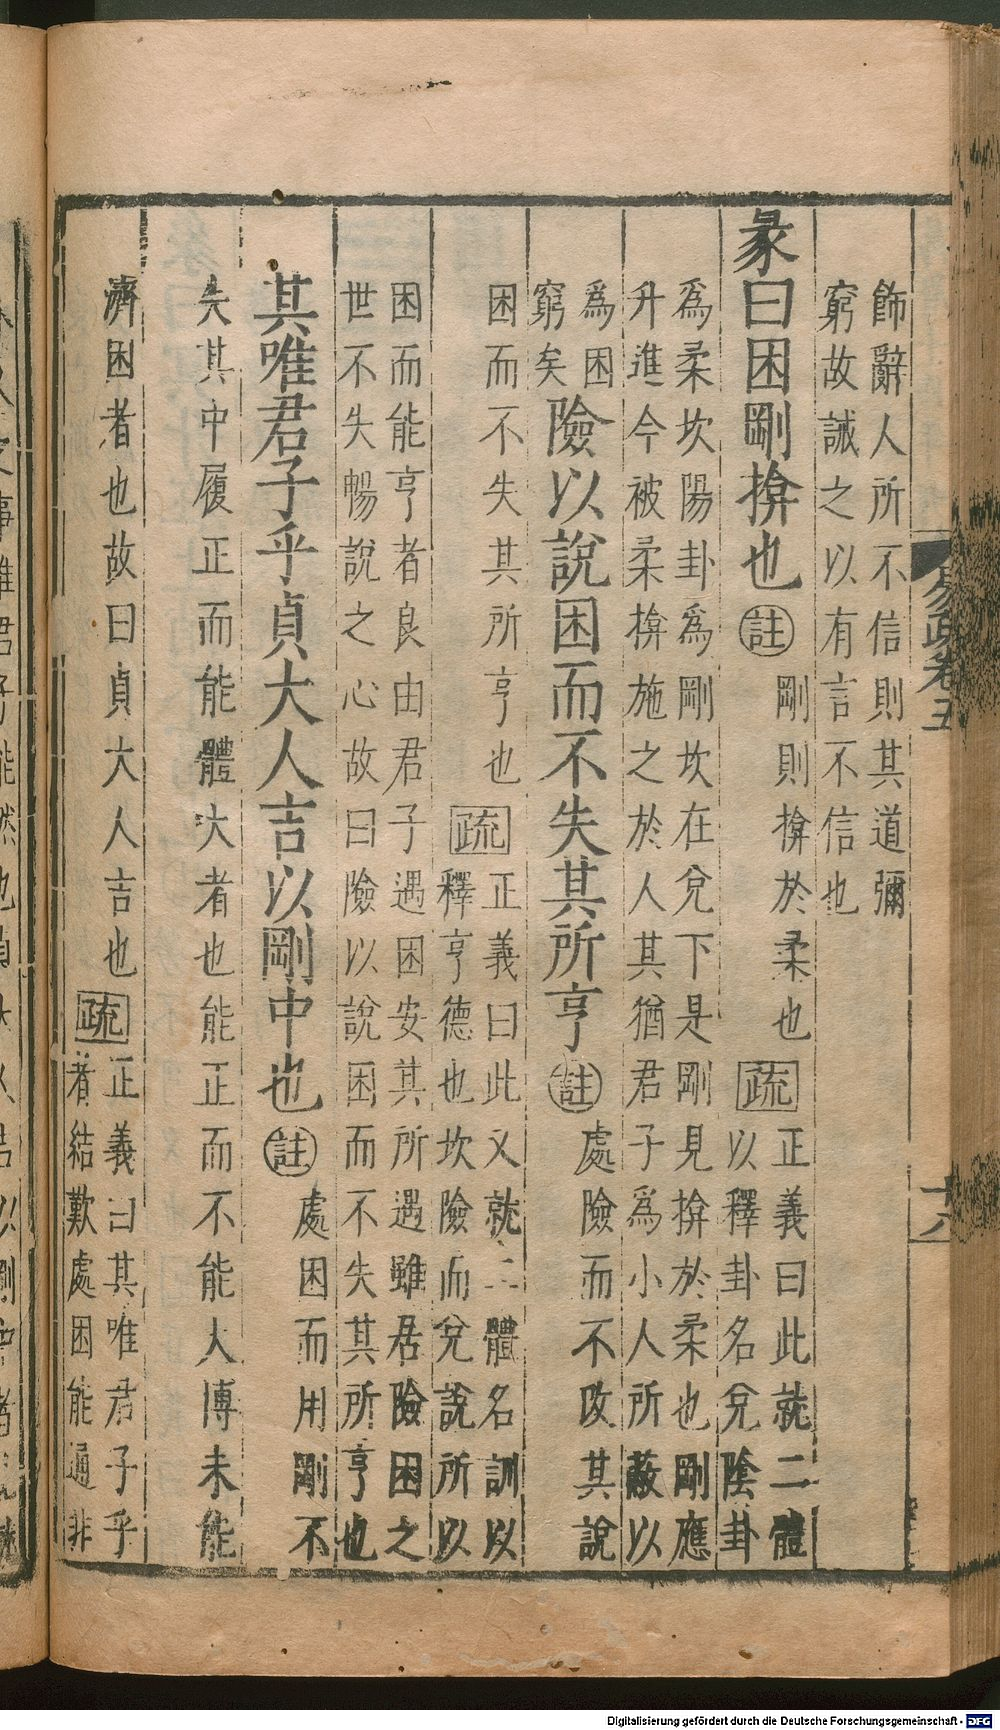 易疏卷五
十八
飾辭人所不信則其道彌
窮故誡之以有言不信也
彖曰困剛揜也註剛則揜於柔也疏正義曰此就二體
以釋卦名兌陰卦
為柔坎陽卦為剛坎在兌下是剛見揜於柔也剛應
升進今被柔揜施之於人其猶君子為小人所蔽以
為困
窮矣
險以說困而不失其所亨註處險而不改其說
困而不失其所亨也疏正義曰此又就二體名訓以
釋亨德也坎險而兌說所以
困而能亨者良由君子遇困安其所遇雖居險困之
世不失暢說之心故曰險以說困而不失其所亨也
其唯君子乎貞大人吉以剛中也註處困而用剛不
失其中履正而能體大者也能正而不能大博未能
濟困者也故曰貞大人吉也疏正義曰其唯君子乎
者結歎處困能通非